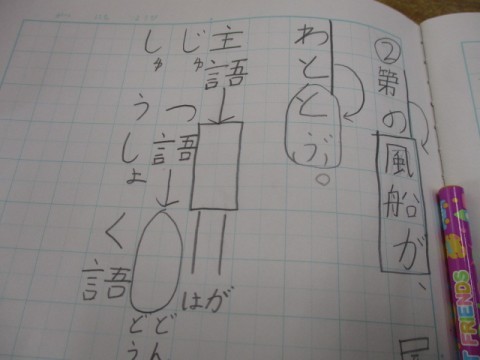 ②第の風船が、
わっととぶ。
主語
が
は
じゅつ語
どん
どう
しゅうしょく語
FRIENDS